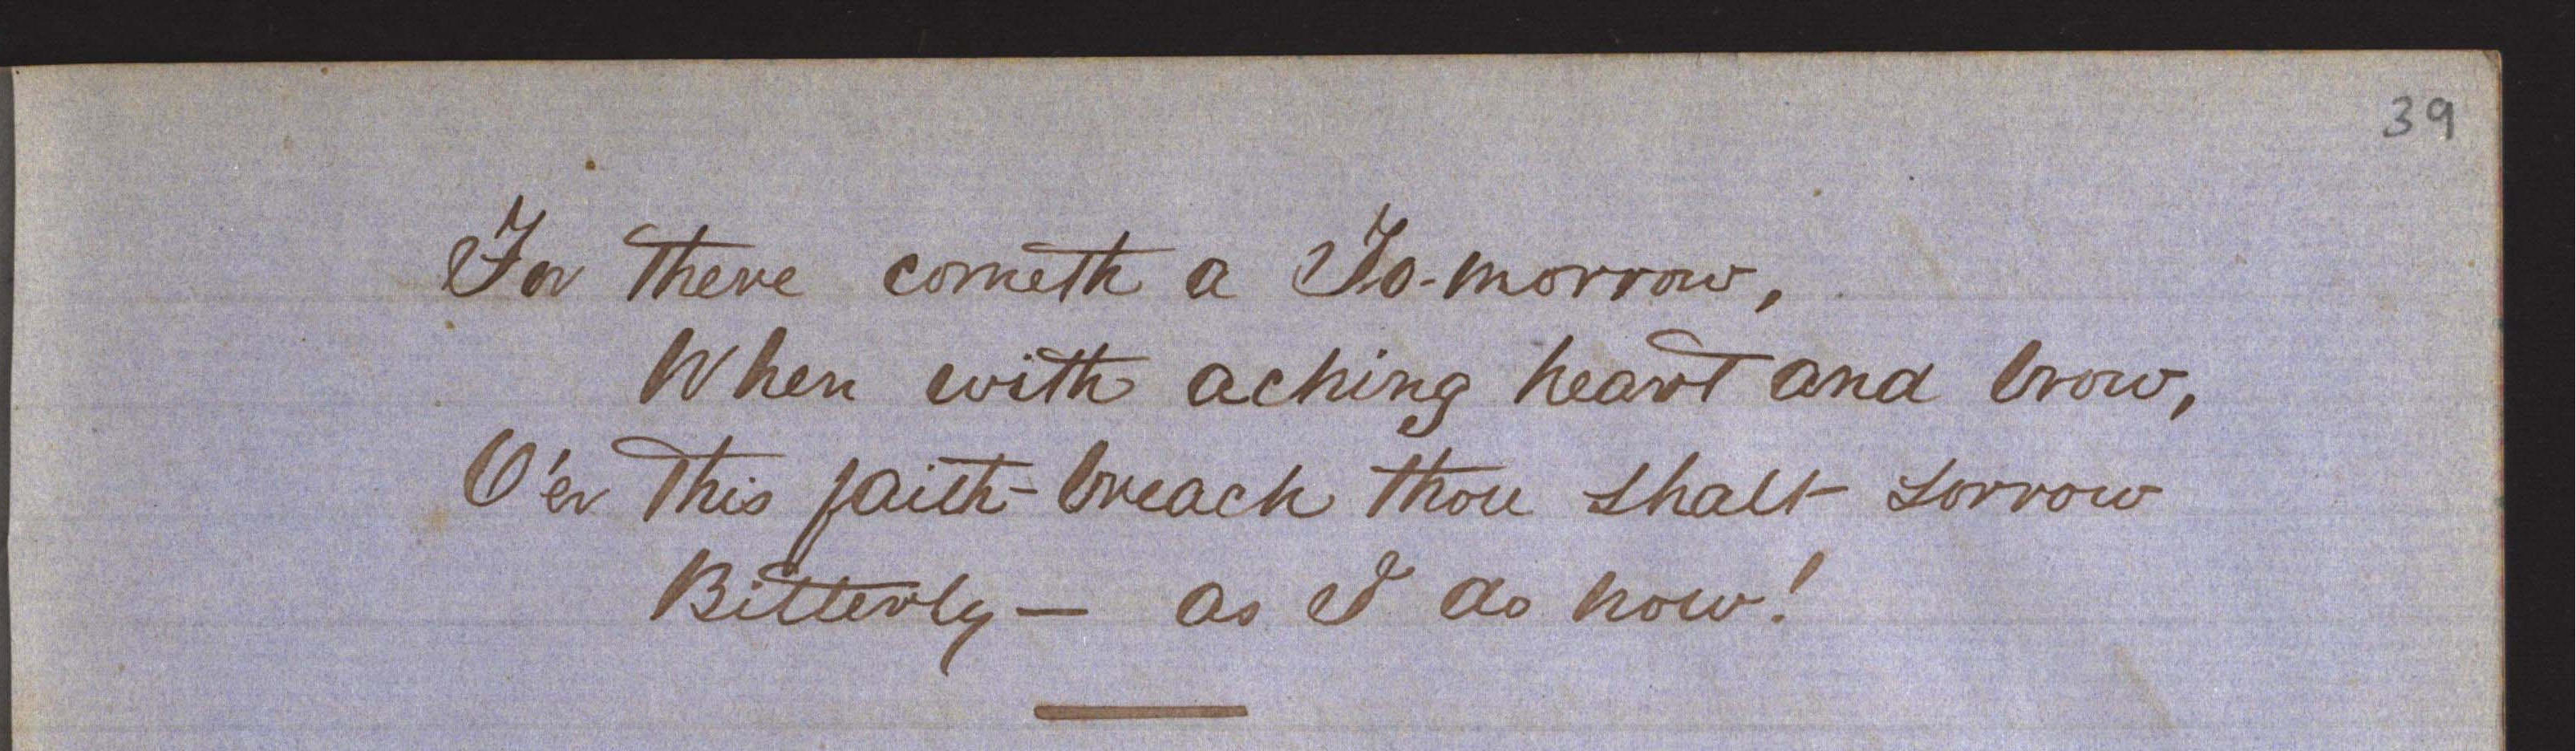 39
For there cometh a To-morrow,
When with aching heart and brow,
O'er this faith-breach thou shalt sorrow
Bitterly — as I do now!